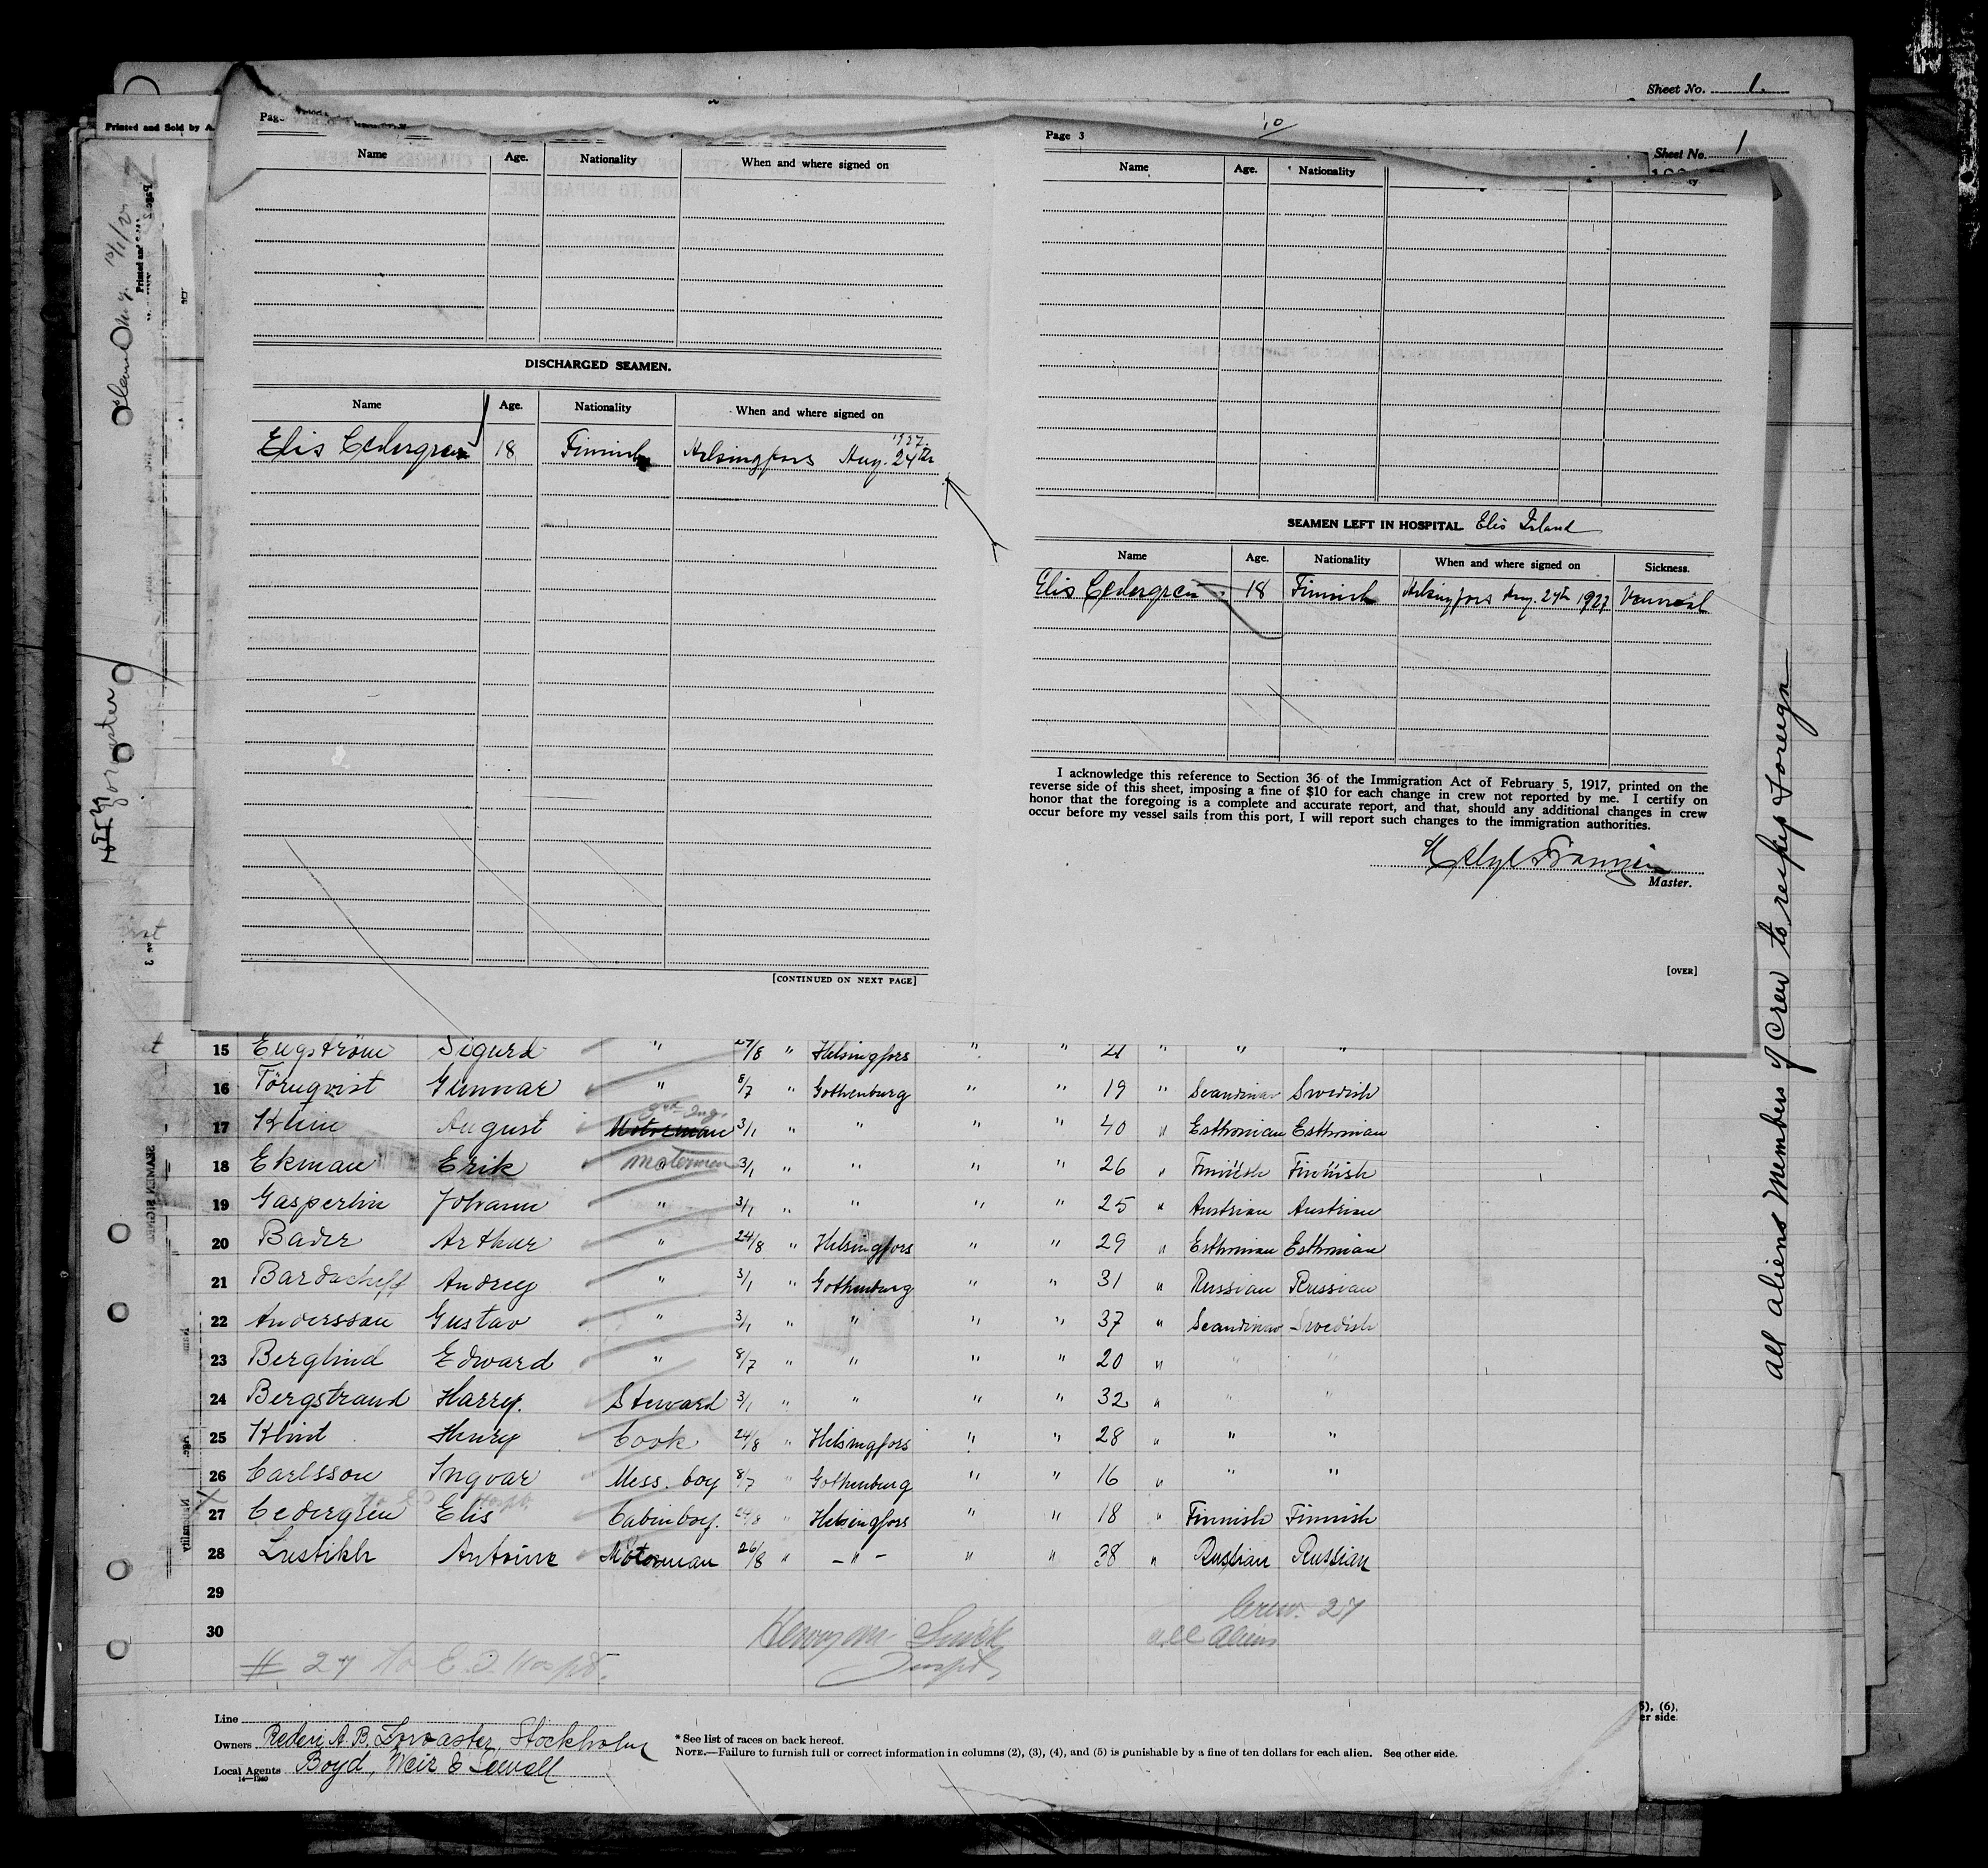 Sheet No. 1.
Printed and Sold by A.
Page 3
10
Sheet No. 1
Name Age. Nationality When and where signed on
Name Age. Nationality
DISCHARGED SEAMEN.
Name Age. Nationality When and where signed on
Elis Cedergren 18 Finnish Helsingfors Aug. 24th 1927.
SEAMEN LEFT IN HOSPITAL Elis Island
Name Age. Nationality When and where signed on Sickness.
Elis Cedergren 18 Finnish Helsingfors Aug. 24th 1927
I acknowledge this reference to Section 36 of the Immigration Act of February 5, 1917, printed on the
reverse side of this sheet, imposing a fine of $10 for each change in crew not reported by me. I certify on
honor that the foregoing is a complete and accurate report, and that, should any additional changes in crew
occur before my vessel sails from this port, I will report such changes to the immigration authorities.
Master.
[CONTINUED ON NEXT PAGE]
[OVER]
15 Engström Sigurd " 24/8 " Helsingfors " " 21 " " "
16 Törnqvist Gunnar " 8/7 " Gothenburg " " 19 " Scandinav Swedish
17 Klein August Motorman 3/1 " " " " 40 " Esthonian Esthonian
18 Ekman Erik Motorman 3/1 " " " " 26 " Finnish Finnish
19 Gasperlin Johann " 3/1 " " " " 25 " Austrian Austrian
20 Bader Arthur " 24/8 " Helsingfors " " 29 " Esthonian Esthonian
21 Bardacheff Andrey " 3/1 " Gothenburg " " 31 " Russian Russian
22 Andersson Gustav " 3/1 " " " " 37 " Scandinav Swedish
23 Berglind Edward " 8/7 " " " " 20 " " "
24 Bergstrand Harry. Steward 3/1 " " " " 32 " " "
25 Klint Henry Cook 24/8 " Helsingfors " " 28 " " "
26 Carlsson Ingvar Mess. boy 8/7 " Gothenburg " " 16 " " "
27 Cedergren Elis Cabinboy. 24/8 " Helsingfors " " 18 " Finnish Finnish
28 Lustikh Antoine Motorman 26/8 " - " - " " 38 " Russian Russian
29
30
Crew. 27
all aliens
# 27 to E.I. Hospt.
Line
Owners Rederi A.B. Stockholm
Local Agents Boyd, Weir & Sewell
14—1240
* See list of races on back hereof.
NOTE.—Failure to furnish full or correct information in columns (2), (3), (4), and (5) is punishable by a fine of ten dollars for each alien. See other side.
5), (6).
er side.
all aliens Members of Crew to reship foreign